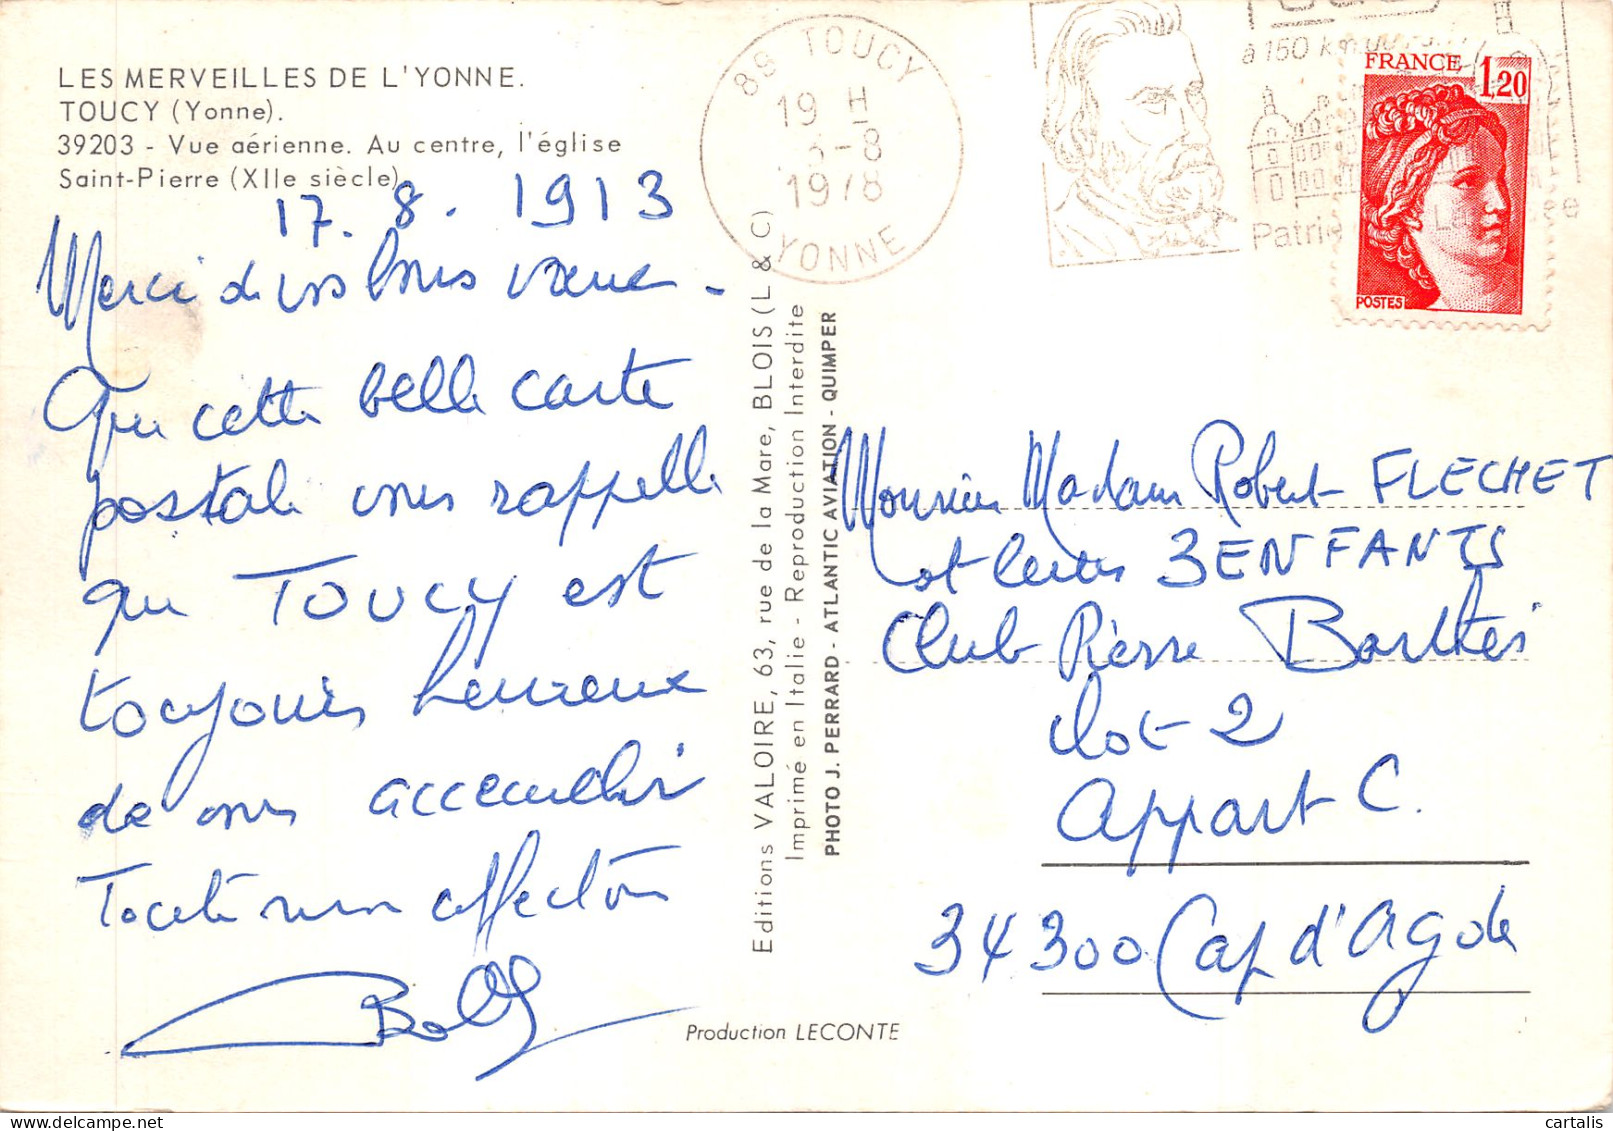 LES MERVEILLES DE L'YONNE.
TOUCY (Yonne).
39203 - Vue aérienne. Au centre, l'église
Saint-Pierre (XIIe siècle).
17. 8. 1913
Merci de vos bons vœux -
Que cette belle carte
postale vous rappelle
que TOUCY est
toujours heureux
de vous accueillir
Toute mon affection
Editions VALOIRE, 63, rue de la Mare, BLOIS (L & C)
Imprimé en Italie - Reproduction Interdite
PHOTO J. PERRARD - ATLANTIC AVIATION - QUIMPER
Production LECONTE
89 TOUCY
19 H
-8
1978
YONNE
à 150 km
Patri
FRANCE 1,20
POSTES
Monsieur Madame Robert FLECHET
et leurs 3 ENFANTS
Club Pierre Barthes
Lot 2
Appart C.
34300 Cap d'Agde
cartalis